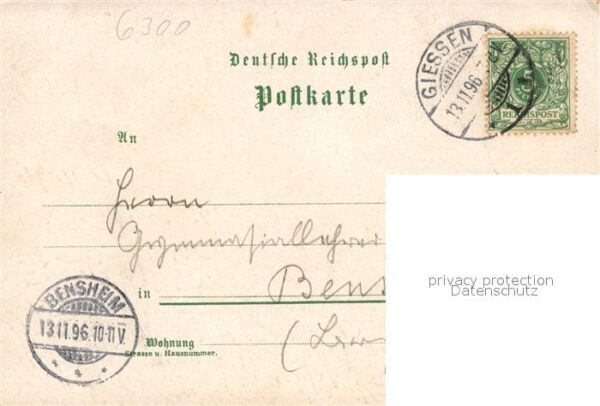 6300
Deutsche Reichspost
Postkarte
GIESSEN
13.11.96.
1
REICHSPOST
An
Herrn
Gymnasiallehrer
BENSHEIM
13.11.96.10-11V.
in Bens
Wohnung
Strasse u. Hausnummer.
privacy protection
Datenschutz